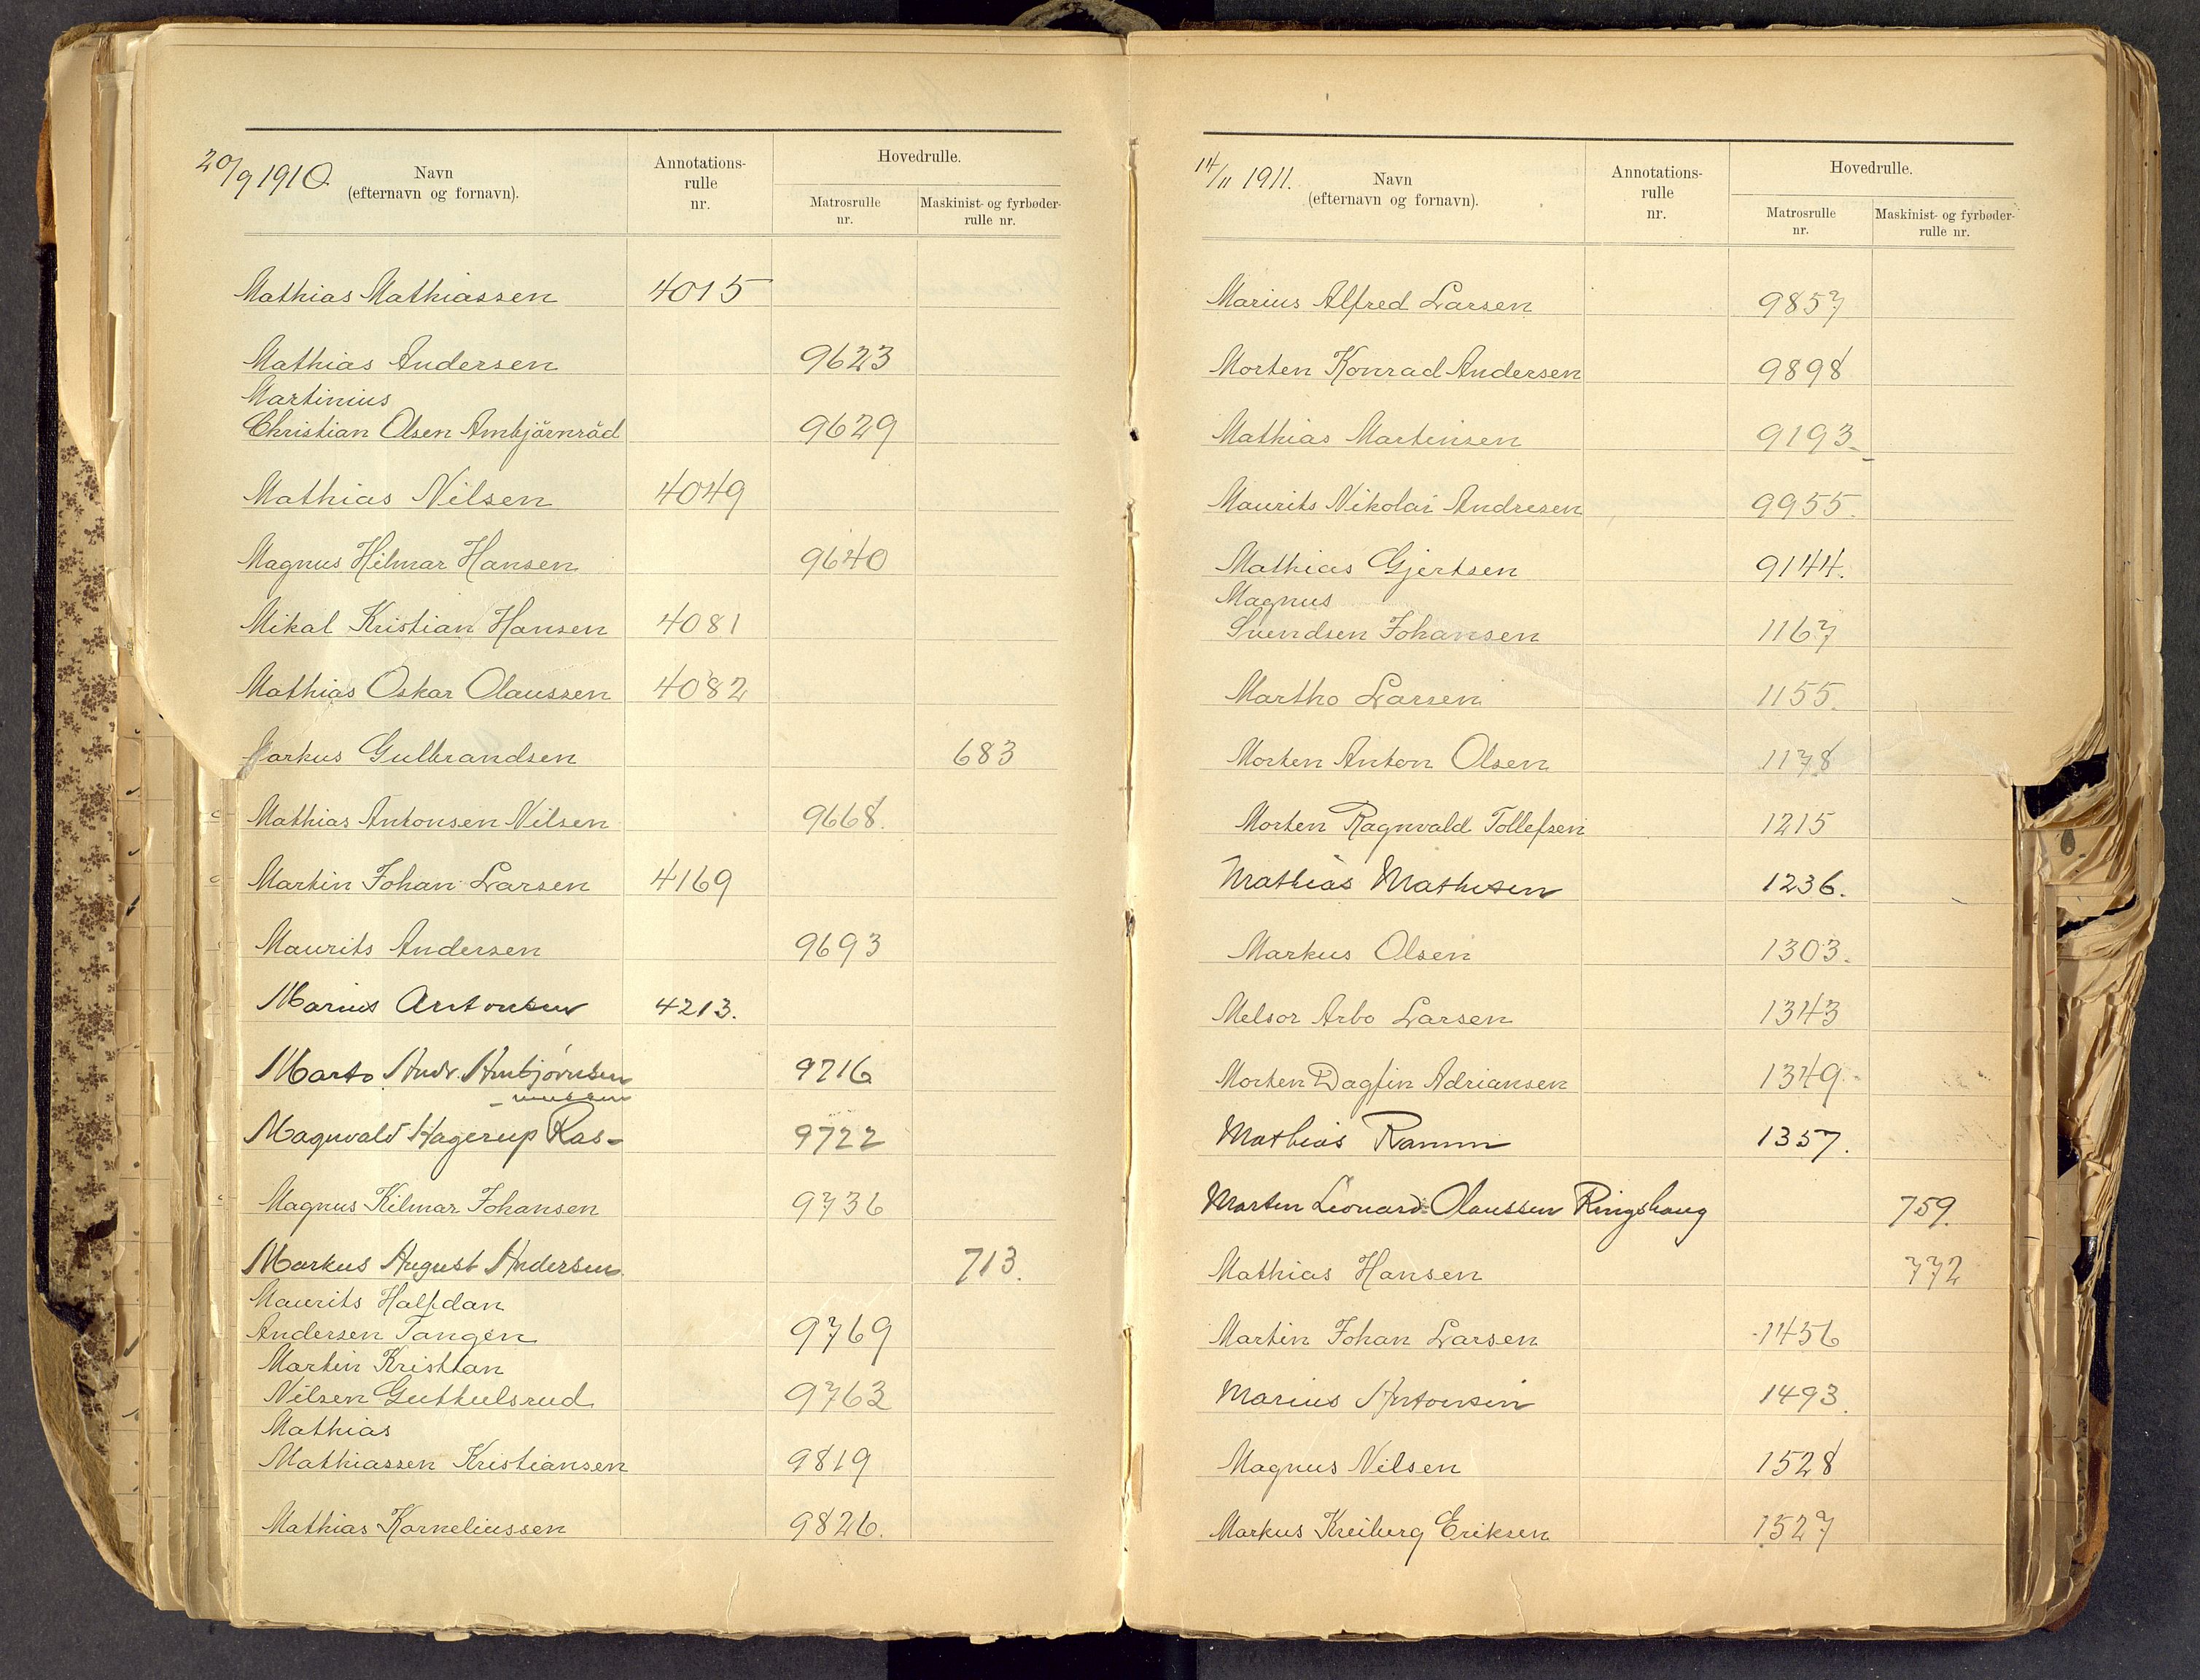 20/9 1910.
Navn
(efternavn og fornavn).
Annotations-
rulle
nr.
Hovedrulle.
Matrosrulle
nr.
Maskinist- og fyrbøder-
rulle nr.
Mathias Mathiassen 4015
Mathias Andersen 9623
Martinius
Christian Olsen Ambjörnröd 9629
Mathias Nilsen 4049
Magnus Hilmar Hansen 9640
Mikal Kristian Hansen 4081
Mathias Oskar Olaussen 4082
Markus Gulbrandsen 683
Mathias Antonsen Nilsen 9668.
Martin Johan Larsen 4169
Maurits Andersen 9693
Marius Antonsen 4213.
Marto Andr. Ambjørnsen 9716
- mussen
Magnvald Hagerup Ras- 9722
Magnus Hilmar Johansen 9736
Markus August Andersen. 713.
Maurits Halfdan
Andersen Tangen 9769
Martin Kristian
Nilsen Guthulsrud 9763
Mathias
Mathiassen Kristiansen 9819
Mathias Korneliussen 9826.
14/11 1911.
Navn
(efternavn og fornavn).
Annotations-
rulle
nr.
Hovedrulle.
Matrosrulle
nr.
Maskinist- og fyrbøder-
rulle nr.
Marius Alfred Larsen 9857
Morten Konrad Andersen 9898
Mathias Martinsen 9193.
Maurits Nikolai Andresen 9955.
Mathias Gjertsen 9144.
Magnus
Svendsen Johansen 1167
Martho Larsen 1155.
Morten Anton Olsen 1178
Morten Ragnvald Tollefsen 1215
Mathias Mathisen 1236.
Markus Olsen 1303.
Melsor Arbo Larsen 1343
Morten Dagfin Adriansen 1349.
Mathias Ramm 1357.
Morten Leonard Olaussen Ringshaug 759.
Mathias Hansen 772
Martin Johan Larsen 1456
Marius Antonsen 1493.
Magnus Nilsen 1528
Markus Kreiberg Eriksen 1527